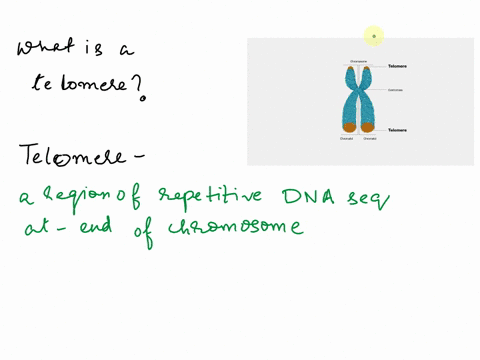 What is a
telomere?
Telomere -
a region of repetitive DNA seq
at - end of chromosome
Chromosome
Telomere
Centromere
Telomere
Chromatid Chromatid